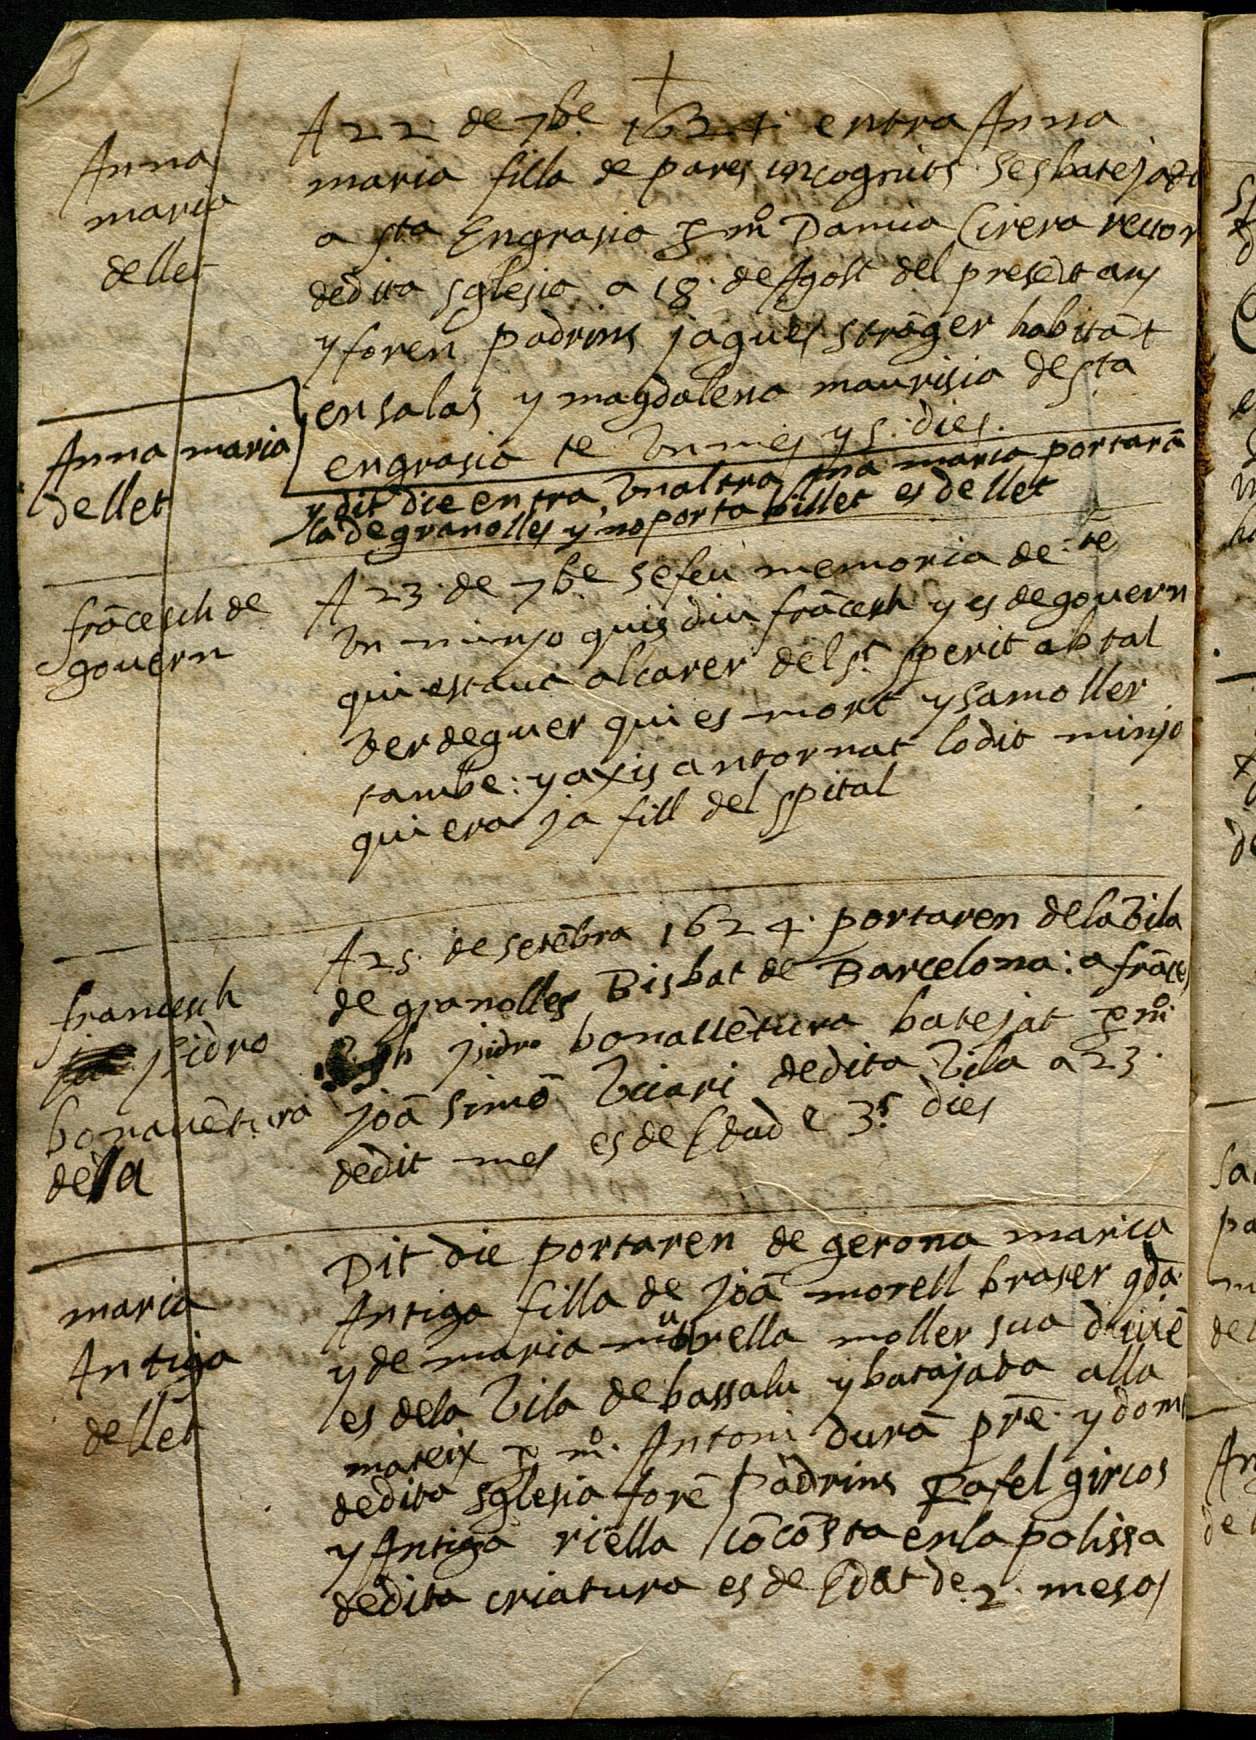 Anna
maria
dellet
A 22 de 7be 1624. entra Anna
maria filla de pares incognits. Sesbatejada
a sta Engrasia p mº Damia Cirera rector
dedita Sglesia a 18. de Agost del presēt any
y foren padrins jaques strāger habitāt
en salas y magdalena maurisia de sta
engrasia te Un mes y 5. dies.
Anna maria
dellet
y dit die entra Unaltra Ana maria portarā
la degranolles y no porta billet es dellet
frācesch de
govern
A 23 de 7be sefeu memoria de tē
Un minyo quis diu frācesch y es degovern
qui estava alcarer del sr sperit abtal
Berdeguer qui es mort y samoller
tambe: y axis antornat lodit minyo
qui era ja fill del spital
francesch
ysidro
bonavētura
della
A 25 de Setēbra 1624. portaren dela Vila
de granolles Bisbat de Barcelona: a frāces
ch ysidro bonavētura batejat p mº
joā simō Vicari dedita Vila a 23.
dedit mes es de Edad e 3s dies
maria
Antiga
dellet
Dit die portaren de gerona maria
Antiga filla de joā morell braser qda
y de maria murella moller sua
es dela Vila de bassalu y batajada alla
mateix p mº. Antoni durā prē. y dom
dedita Sglesia forē padrins Rafel gircos
y Antiga riella cōcōsta enla polissa
dedita criatura es de Edat de 2. mesos